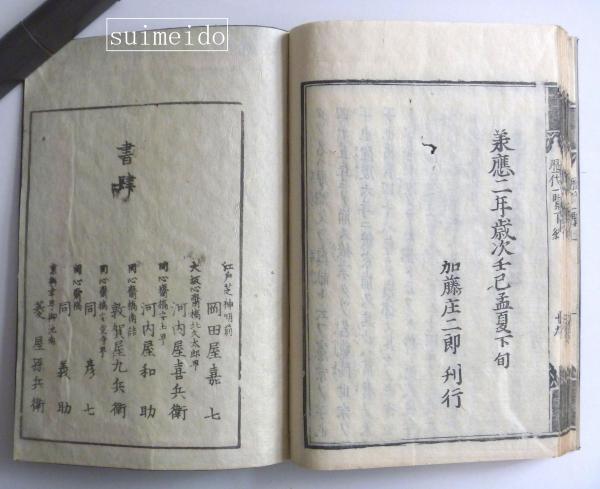 suimeido
兼應二年歳次壬巳孟夏下旬
加藤庄二郎刊行
歷代一覧下終
十九
書肆
江戸芝神明前
岡田屋嘉七
大坂心齋橋北久太郎町
河内屋喜兵衛
同心齋橋安土町
河内屋和助
同心齋橋南詰
敦賀屋九兵衛
同心齋橋
同彦七
同心齋橋
同義助
菱屋孫兵衛